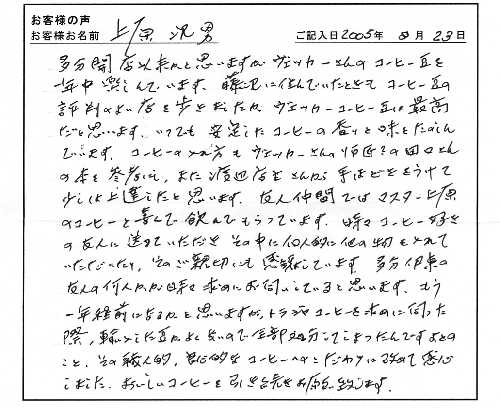 お客様の声
お客様お名前 上原 次男 ご記入日2005年 8月23日
多分開店以来だと思いますが ヴェッカーさんのコーヒー豆を
一年中 楽しんでいます。藤沢に住んでいたときもコーヒー豆の
評判のよい店を歩きましたが、ヴェッカーコーヒー豆は最高
だと思います。いつでも安定したコーヒーの香りと味をたのしん
でいます。コーヒーの入れ方もヴェッカーさんの師匠?の田口さん
の本を参考にし、また渡辺店主さんから手ほどきをうけて
少しは上達したと思います。友人仲間ではマスター上原
のコーヒーと喜んで飲んでもらっています。時々コーヒー好き
の友人に送っていただき その中に個人的に他の物を入れて
いただいたり、そのご親切にも感謝しています。多分伊東の
友人の何人かが時々求めにお伺いしていると思います。もう
一年程前になるかと思いますが、トラジャコーヒーを求めに伺った
際、輸入した豆がよくないので全部処分してしまったんですよとの
こと、その職人的、良心的なコーヒーへのこだわりに改めて感心
しました。おいしいコーヒーを引き続きお願い致します。